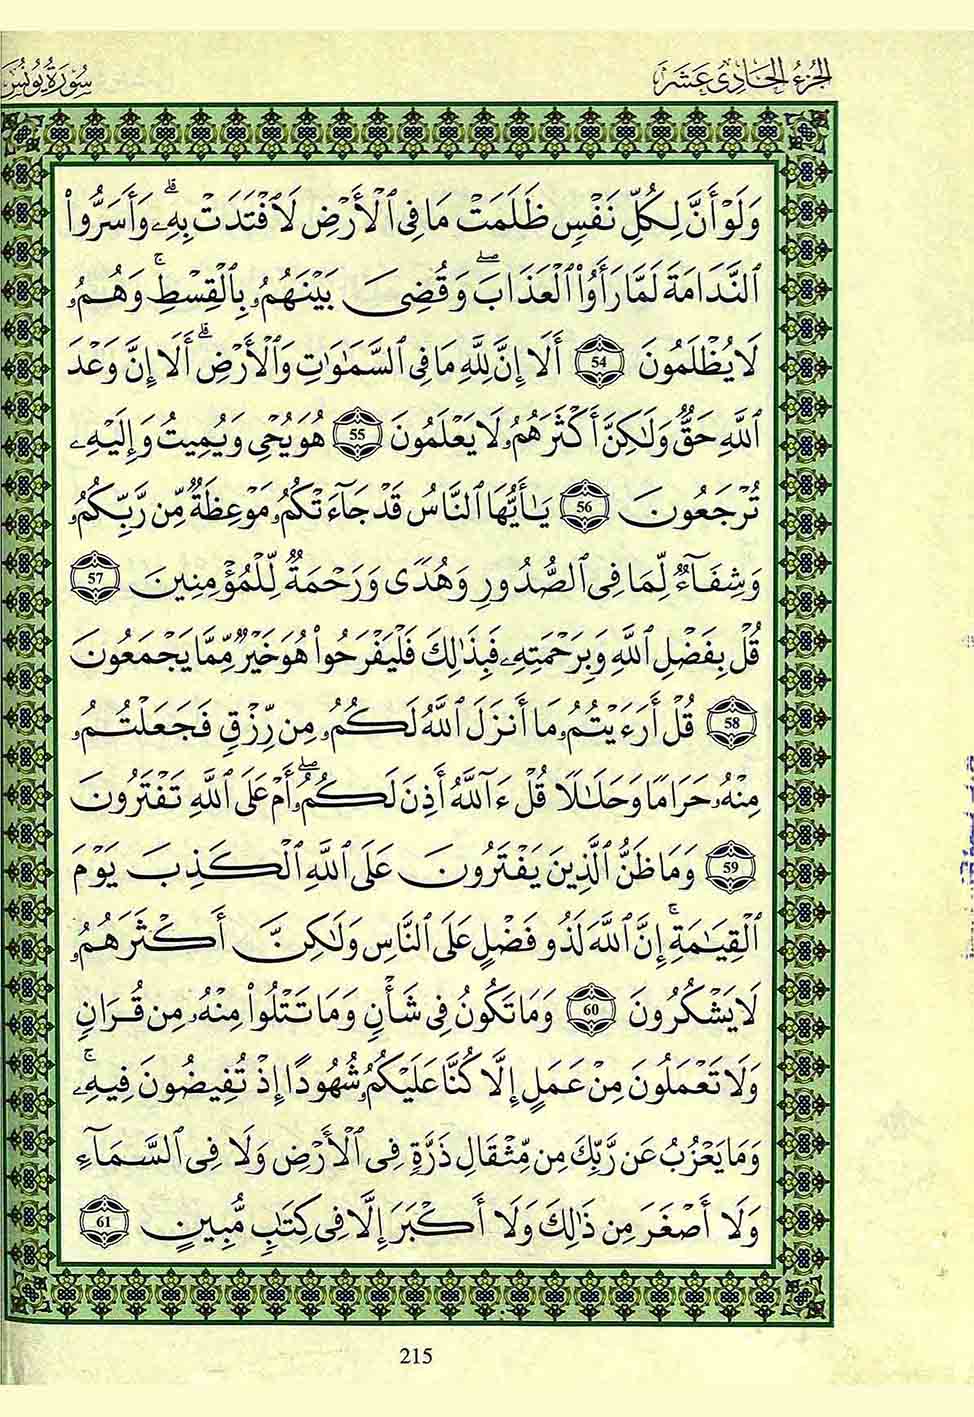 الجزء الحادي عشر
سورة يونس
وَلَوْ أَنَّ لِكُلِّ نَفْسٍ ظَلَمَتْ مَا فِي ٱلْأَرْضِ لَٱفْتَدَتْ بِهِۦ ۗ وَأَسَرُّوا۟
ٱلنَّدَامَةَ لَمَّا رَأَوُا۟ ٱلْعَذَابَ ۖ وَقُضِيَ بَيْنَهُمُۥ بِٱلْقِسْطِ ۚ وَهُمُۥ
لَا يُظْلَمُونَ 54 أَلَا إِنَّ لِلَّهِ مَا فِي ٱلسَّمَٰوَٰتِ وَٱلْأَرْضِ ۗ أَلَا إِنَّ وَعْدَ
ٱللَّهِ حَقٌّ وَلَٰكِنَّ أَكْثَرَهُمُۥ لَا يَعْلَمُونَ 55 هُوَ يُحْيِۦ وَيُمِيتُ وَإِلَيْهِۦ
تُرْجَعُونَ 56 يَٰأَيُّهَا ٱلنَّاسُ قَدْ جَآءَتْكُمُۥ مَوْعِظَةٌ مِّن رَّبِّكُمُۥ
وَشِفَآءٌ لِّمَا فِي ٱلصُّدُورِ وَهُدًى وَرَحْمَةٌ لِّلْمُؤْمِنِينَ 57
قُلْ بِفَضْلِ ٱللَّهِ وَبِرَحْمَتِهِۦ فَبِذَٰلِكَ فَلْيَفْرَحُوا۟ هُوَ خَيْرٌ مِّمَّا يَجْمَعُونَ
58 قُلْ أَرَءَيْتُمُۥ مَا أَنزَلَ ٱللَّهُ لَكُمُۥ مِن رِّزْقٍ فَجَعَلْتُمُۥ
مِنْهُۥ حَرَامًا وَحَلَٰلًا قُلْ ءَآللَّهُ أَذِنَ لَكُمُۥ ۖ أَمْ عَلَى ٱللَّهِ تَفْتَرُونَ
59 وَمَا ظَنُّ ٱلَّذِينَ يَفْتَرُونَ عَلَى ٱللَّهِ ٱلْكَذِبَ يَوْمَ
ٱلْقِيَٰمَةِ ۚ إِنَّ ٱللَّهَ لَذُو فَضْلٍ عَلَى ٱلنَّاسِ وَلَٰكِنَّ أَكْثَرَهُمُۥ
لَا يَشْكُرُونَ 60 وَمَا تَكُونُ فِي شَأْنٍ وَمَا تَتْلُوا۟ مِنْهُۥ مِن قُرَانٍ
وَلَا تَعْمَلُونَ مِنْ عَمَلٍ إِلَّا كُنَّا عَلَيْكُمُۥ شُهُودًا إِذْ تُفِيضُونَ فِيهِۦ ۚ
وَمَا يَعْزُبُ عَن رَّبِّكَ مِن مِّثْقَالِ ذَرَّةٍ فِي ٱلْأَرْضِ وَلَا فِي ٱلسَّمَآءِ
وَلَا أَصْغَرَ مِن ذَٰلِكَ وَلَا أَكْبَرَ إِلَّا فِي كِتَٰبٍ مُّبِينٍ 61
215